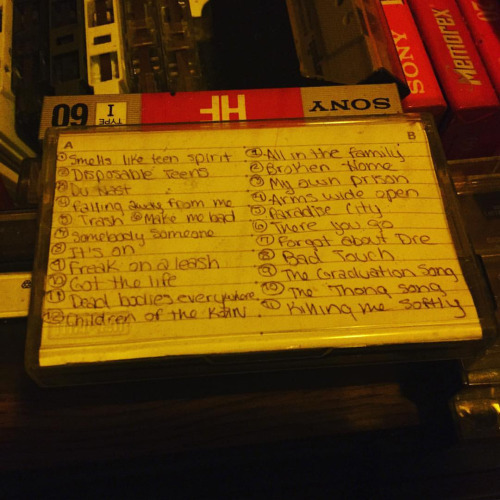 SONY
Memorex
60
TYPE I
HF
SONY
A
B
① Smells like teen spirit
② Disposable Teens
③ Du Hast
④ Falling away from me
⑤ Trash ⑥ Make me bad
⑦ Somebody Someone
⑧ It's on
⑨ Freak on a leash
⑩ Got the life
⑪ Dead bodies everywhere
⑫ Children of the Korn
① All in the family
② Broken Home
③ My own prison
④ Arms wide open
⑤ Paradise City
⑥ There you go
⑦ Forgot about Dre
⑧ Bad Touch
⑨ The Graduation song
⑩ The Thong song
⑪ Killing me softly